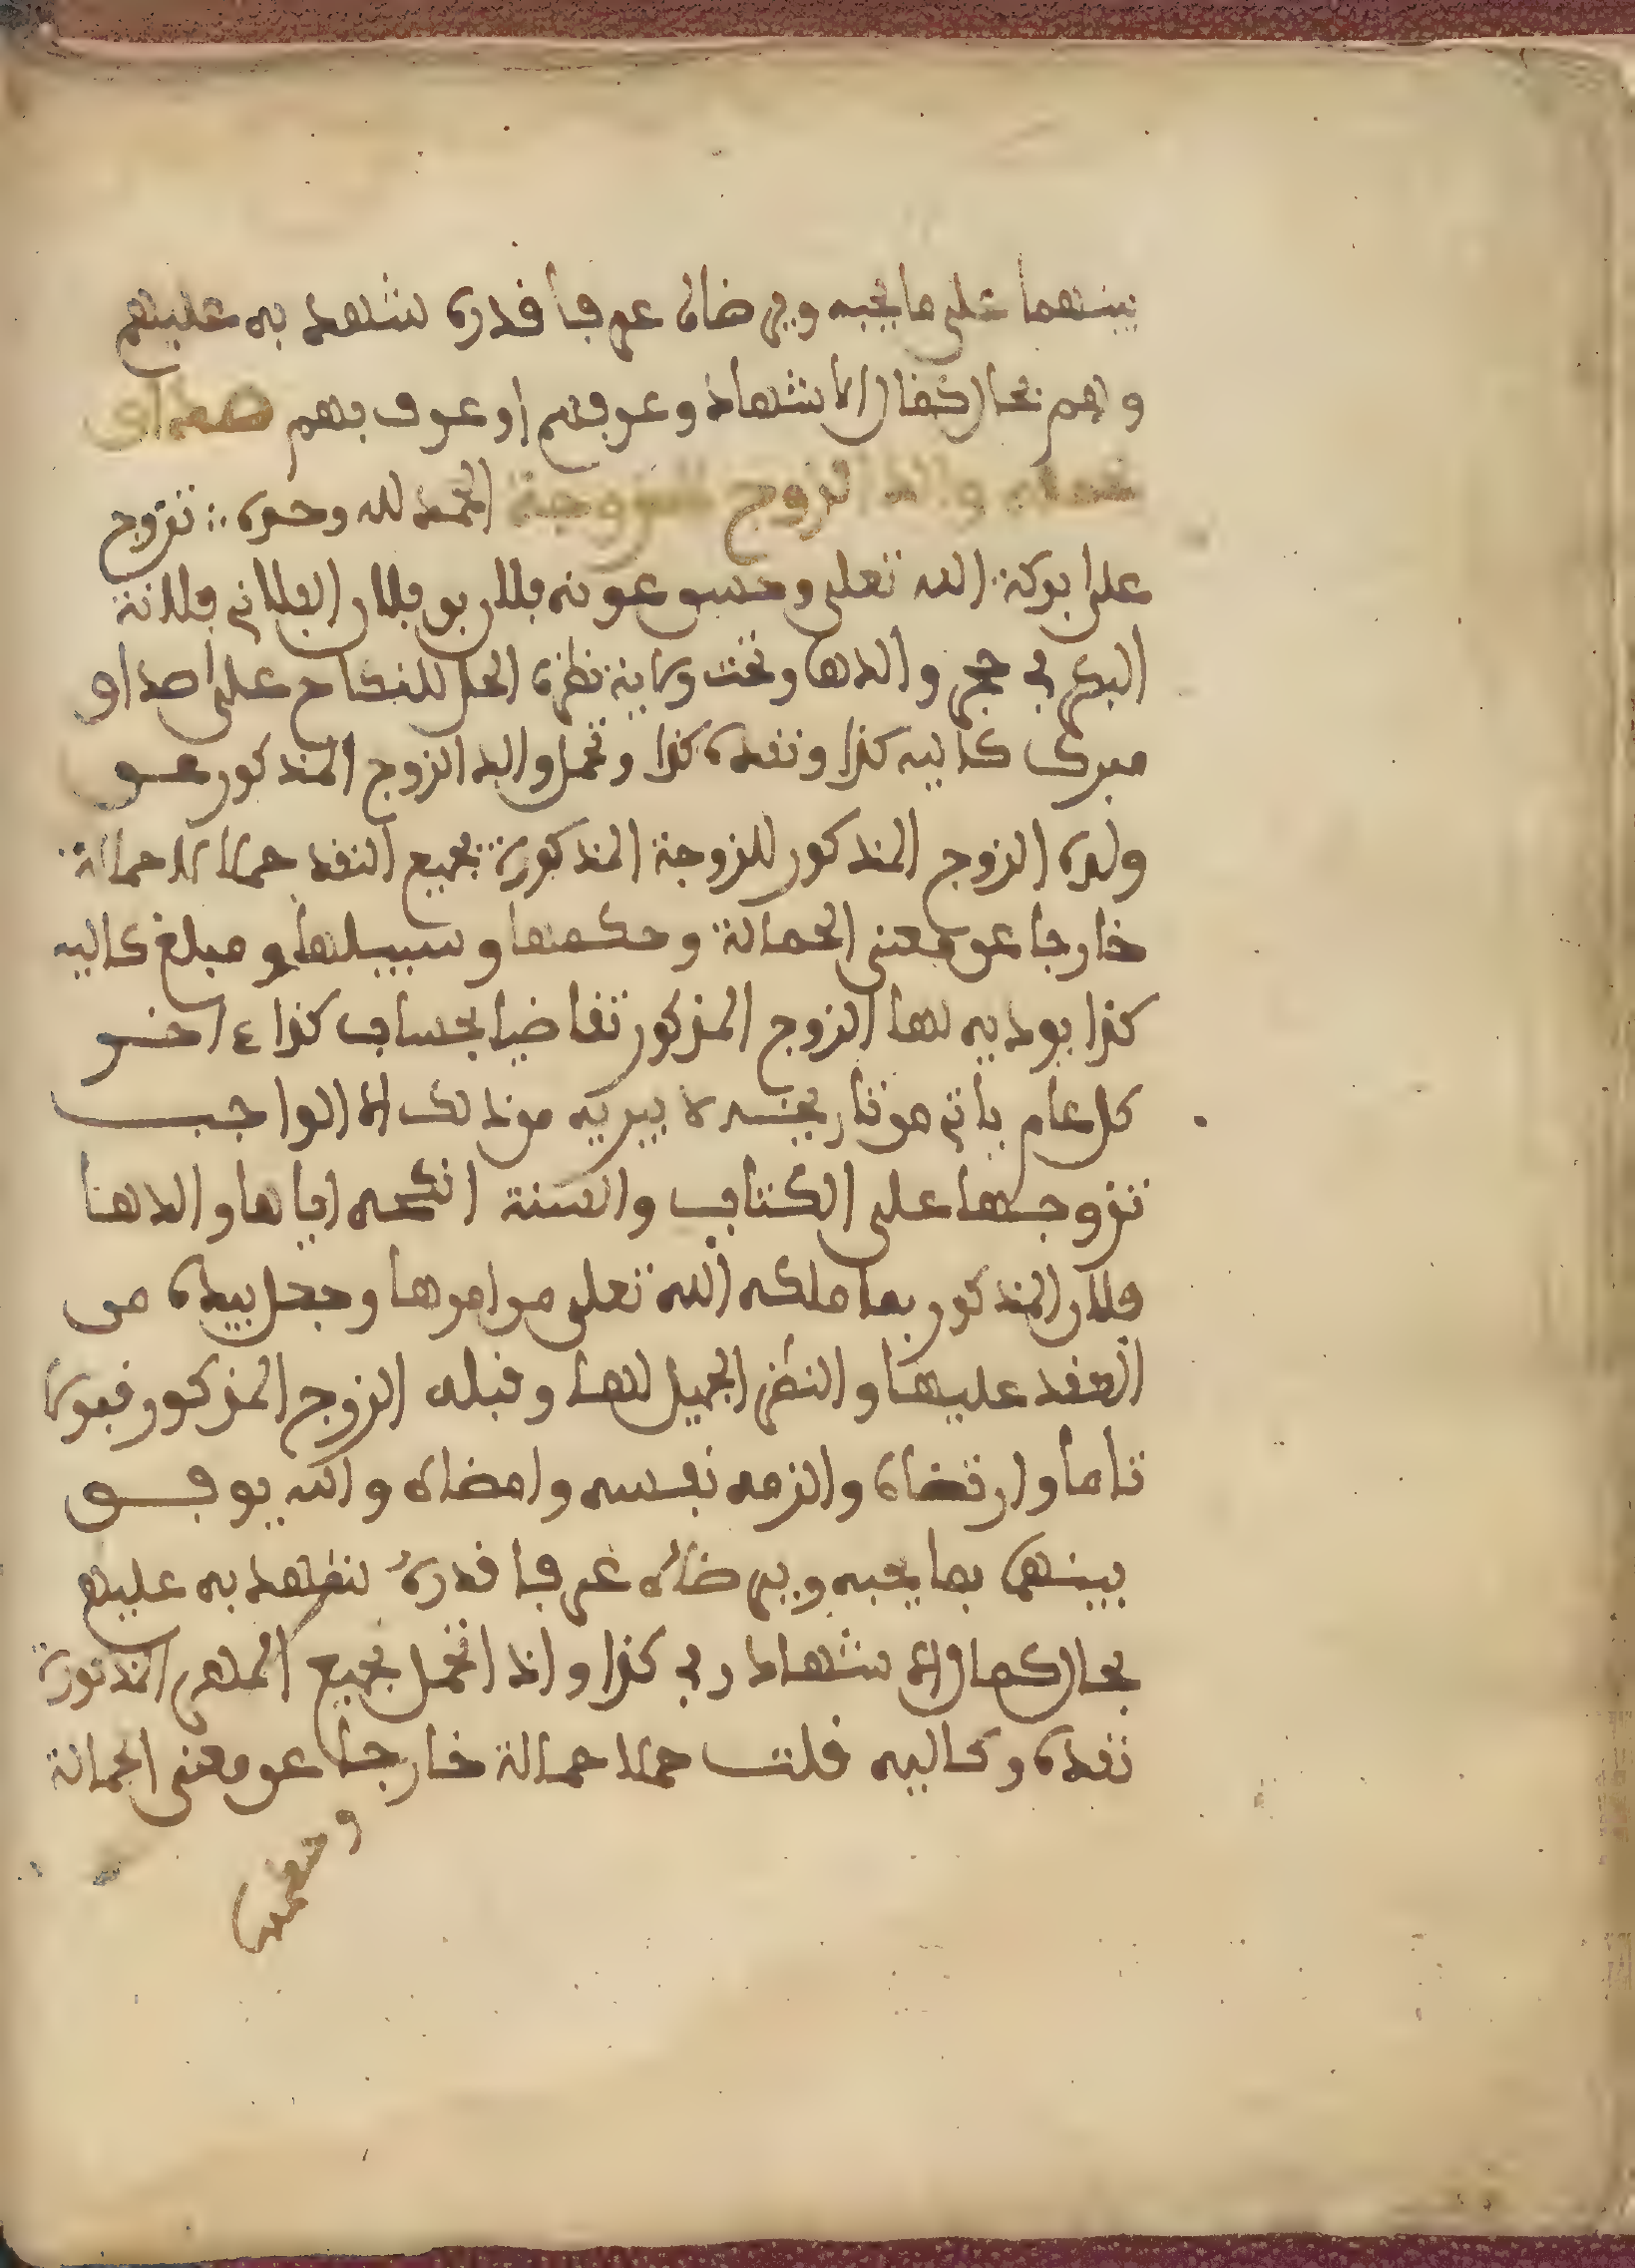 بينهما على ما يحبه ويرضاه عرفا قدره شهد به عليهم
وهم بحال كمال الاشهاد وعرفهم او عرف بهم صداق
والد الزوج للزوجة الحمد لله وحده تزوج
على بركة الله تعلى وحسن عونه فلان بن فلان الفلاني فلانة
البكر في حجر والدها وتحت ولاية نظره الحل للنكاح على صداق
مبرك كاليه كذا ونقده كذا وتحمل والد الزوج المذكور عن
ولده الزوج المذكور للزوجة المذكورة بجميع النقد حملا لا حمالة
خارجا عن معنى الحمالة وحكمها وسبيلها ومبلغ كاليه
كذا يوديه لها الزوج المذكور تقاضيا بحساب كذا ء اخر
كل عام ياتي من تاريخه لا يبريه من ذلك الا الواجب
تزوجها على الكتاب والسنة انكحه اياها والدها
فلان المذكور بما ملكه الله تعلى من امرها وجعل بيده من
العقد عليها والنظر الجميل لها وقبله الزوج المذكور قبولا
تاما وارتضاه والزمه نفسه وامضاه والله يوفق
بينهما بما يحبه ويرضاه عرفا قدره شهد به عليهم
بحال كمال الاشهاد وفي كذا واذا تحمل بجميع المهر المذكورة
نقده وكاليه قلت حملا حمالة خارجا عن معنى الحمالة